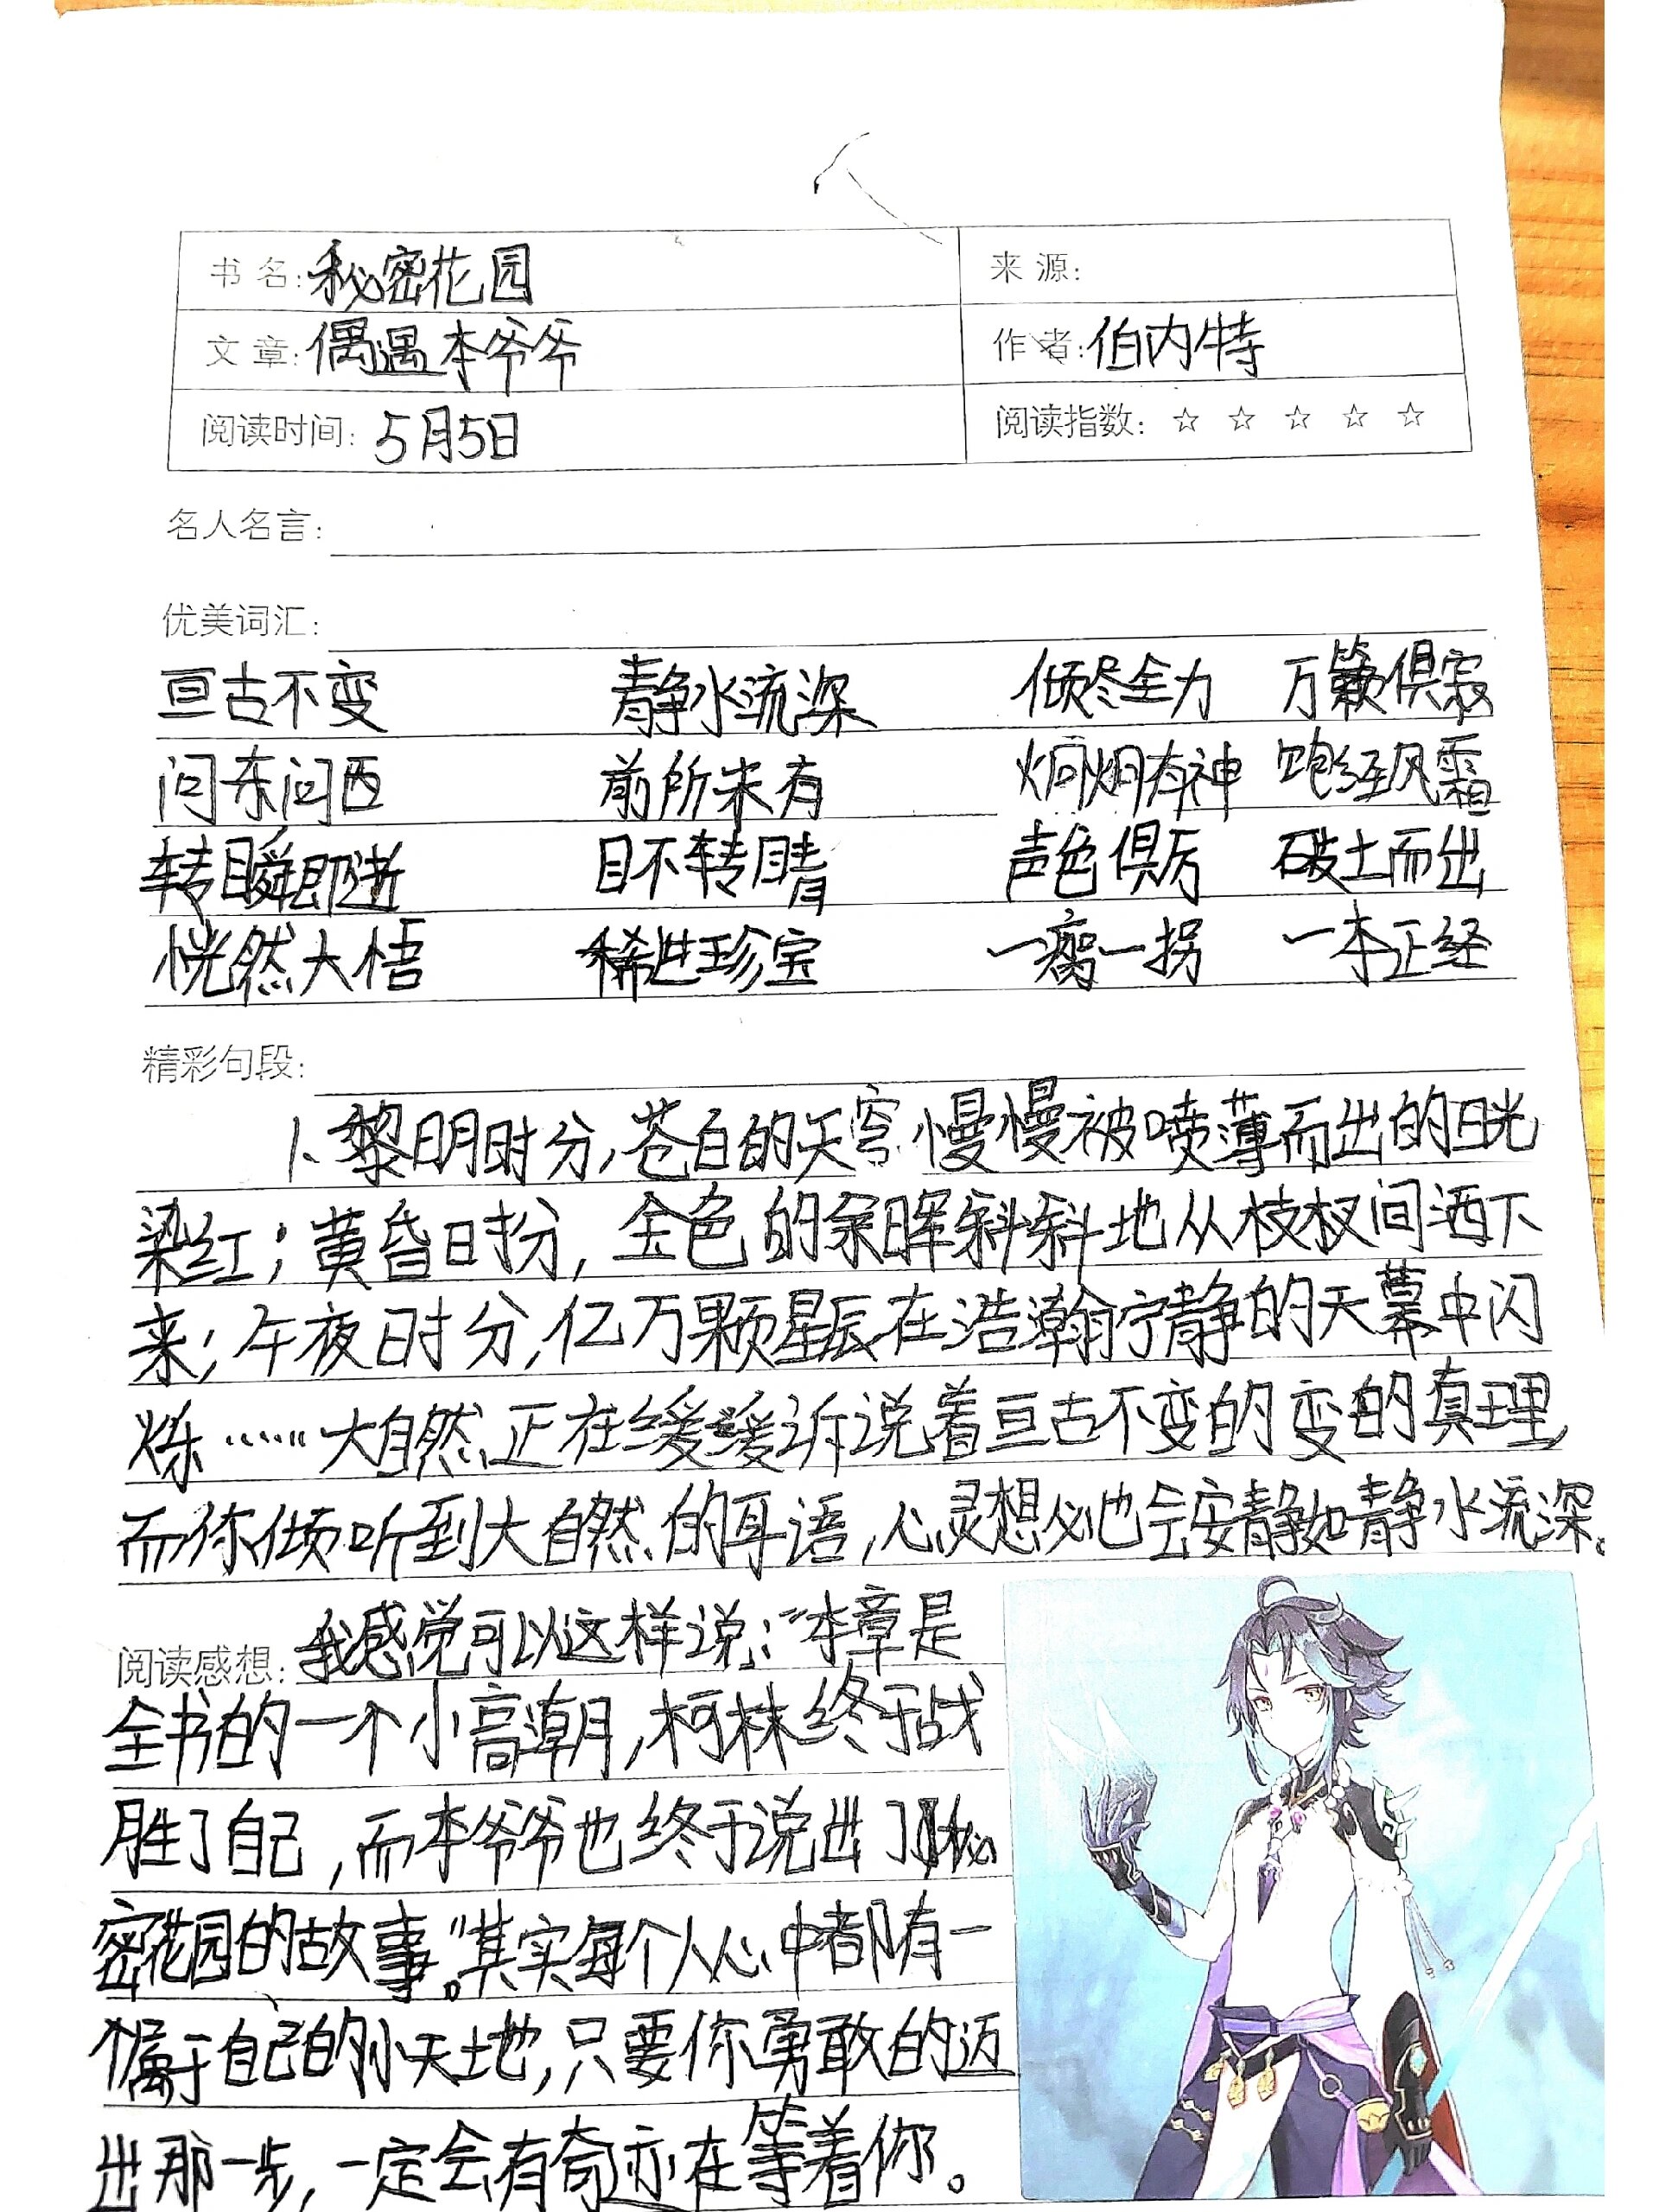 书 名: 秘密花园 来 源:
文 章: 偶遇本爷爷 作 者: 伯内特
阅读时间: 5月5日 阅读指数: ☆ ☆ ☆ ☆ ☆
名人名言:
优美词汇:
亘古不变 静水流深 倾尽全力 万籁俱寂
问东问西 前所未有 炯炯有神 饱经风霜
转瞬即逝 目不转睛 声色俱厉 破土而出
恍然大悟 稀世珍宝 一瘸一拐 一本正经
精彩句段:
1、黎明时分,苍白的天穹慢慢被喷薄而出的日光
染红;黄昏时分,金色的余晖斜斜地从枝杈间洒下
来;午夜时分,亿万颗星辰在浩瀚宁静的天幕中闪
烁……大自然正在缓缓诉说着亘古不变的变的真理,
而你倾听到大自然的耳语,心灵想必也会安静如静水流深。
阅读感想: 我感觉可以这样说:“本章是
全书的一个小高潮,柯林终于战
胜了自己,而本爷爷也终于说出了秘
密花园的故事。”其实每个人心中都有一
个属于自己的小天地,只要你勇敢的迈
出那一步,一定会有奇亦在等着你。